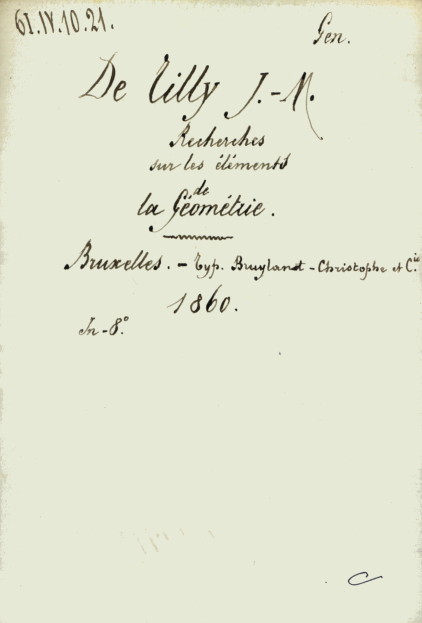 61.IV.10.21.
Gen.
De Tilly J.-M.
Recherches
sur les éléments
de
la Géométrie.
Bruxelles. - Typ. Bruylant-Christophe et C.ie
1860.
In-8°.